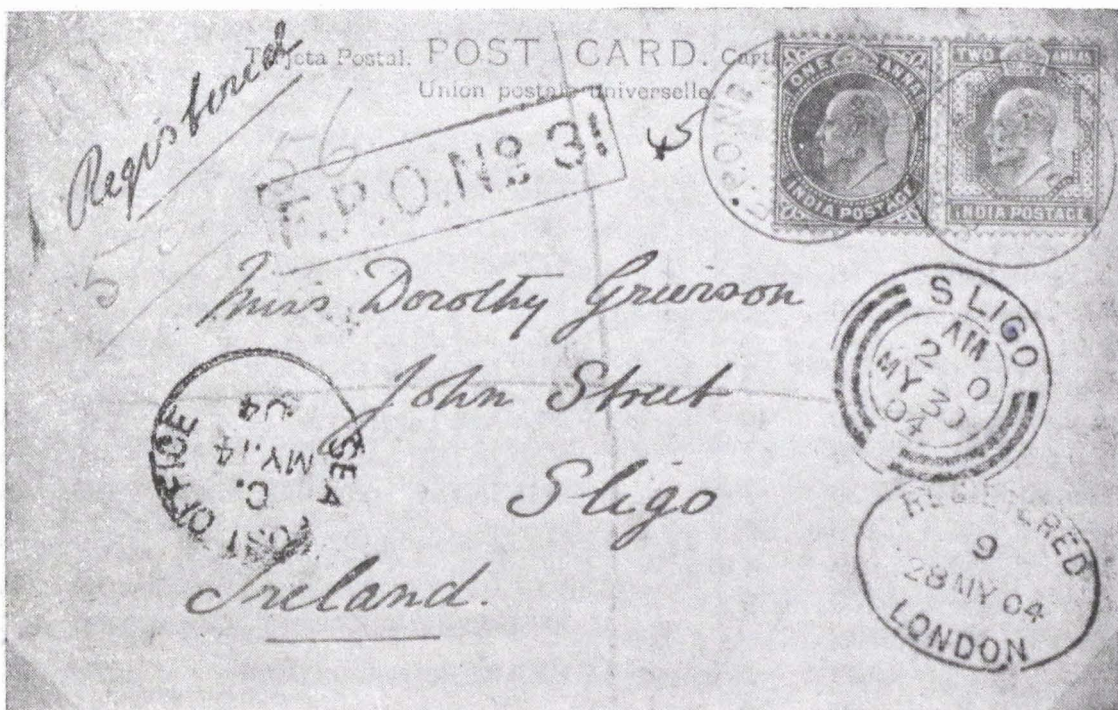 Tarjeta Postal. POST CARD. Carte
Union postale universelle.
Registered
56
F.P.O. No. 31
45
ONE ANNA
INDIA POSTAGE
TWO ANNAS
INDIA POSTAGE
F.P.O. No.
Miss Dorothy Grierson
John Street
Sligo
Ireland.
SLIGO
AM
2 0
MY 30
04
SEA POST OFFICE
C.
MY.14
04
REGISTERED
9
28 MY 04
LONDON